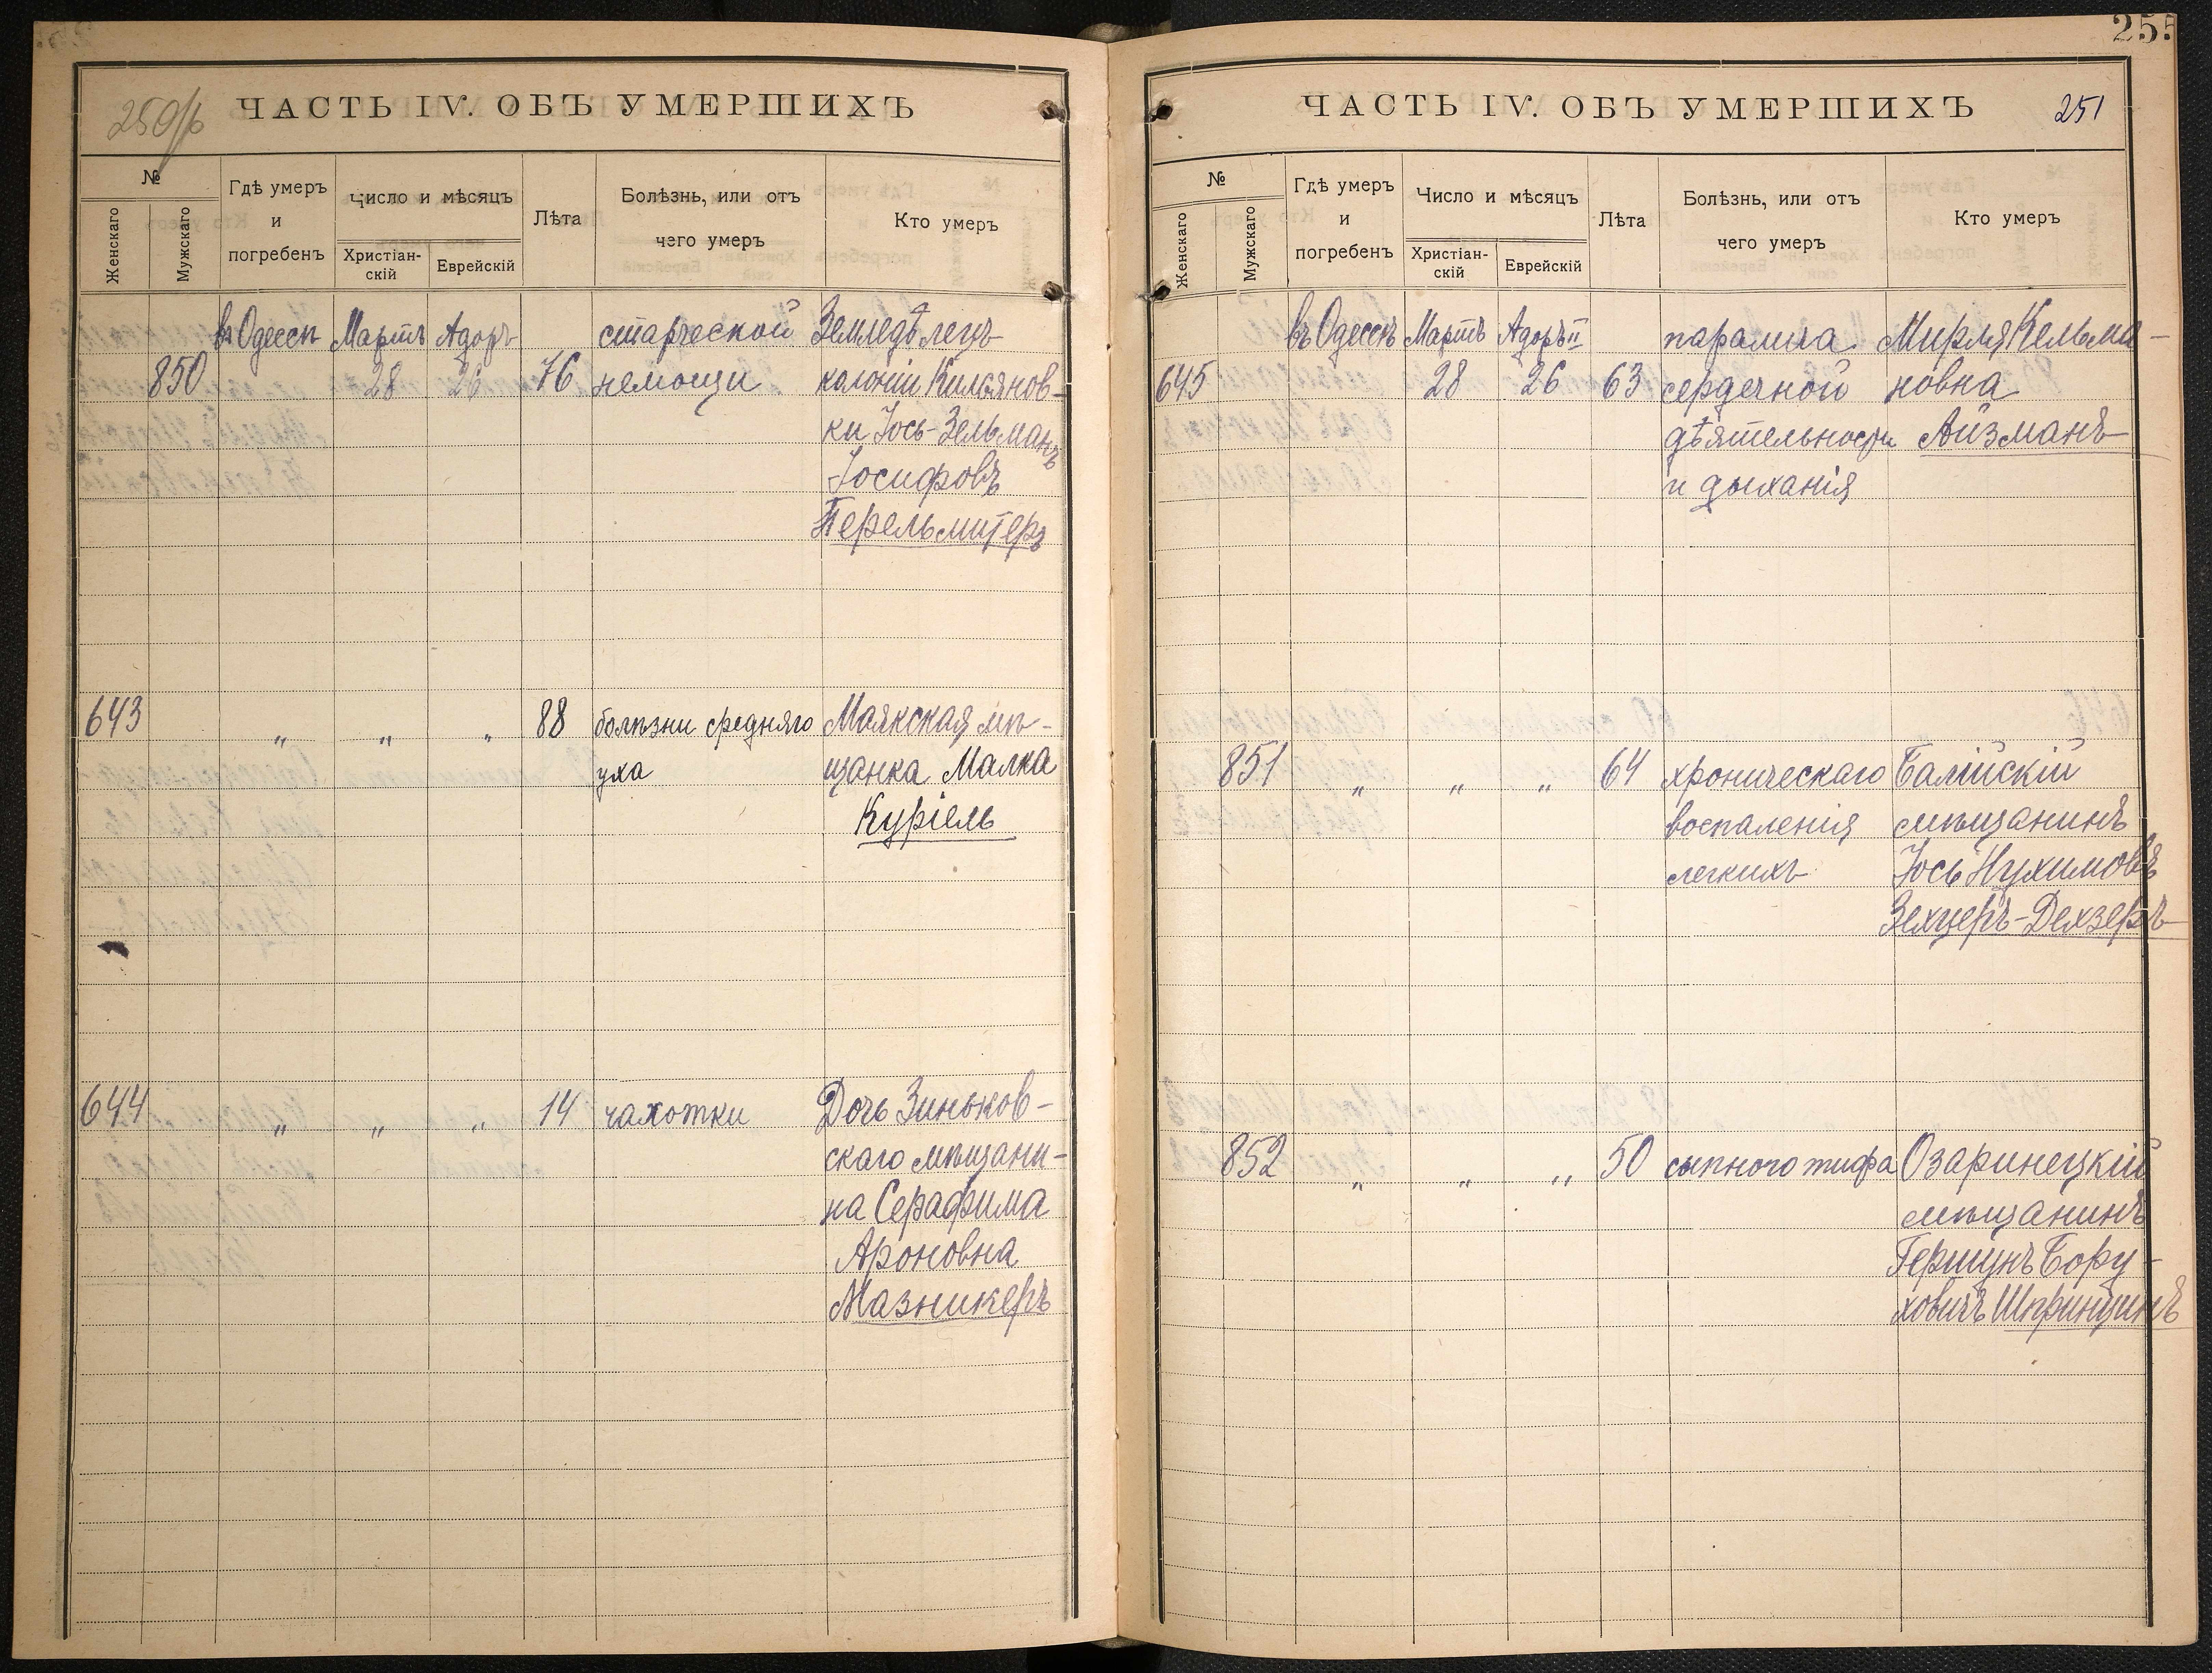 250/б ЧАСТЬ IV. ОБЪ УМЕРШИХЪ
№ Гдѣ умеръ и погребенъ Число и мѣсяцъ Лѣта Болѣзнь, или отъ чего умеръ Кто умеръ
Женскаго Мужскаго Христіан-скій Еврейскій
въ Одессѣ Мартъ Адаръ старческой Земледѣлецъ
850 28 26 76 немощи колоніи Кильянов-
ки Іось-Зельманъ
Іосифовъ
Перельмитеръ
643 88 болѣзни средняго Маякская мѣ-
„ „ „ уха щанка Малка
Куріель
644 „ „ „ 14 чахотки Дочь Зиньков-
скаго мѣщани-
на Серафима
Ароновна
Мазникеръ
255
ЧАСТЬ IV. ОБЪ УМЕРШИХЪ 251
№ Гдѣ умеръ и погребенъ Число и мѣсяцъ Лѣта Болѣзнь, или отъ чего умеръ Кто умеръ
Женскаго Мужскаго Христіан-скій Еврейскій
въ Одессѣ Мартъ Адаръ II паралича Мирля Кельма-
645 28 26 63 сердечной новна
дѣятельности Айзманъ
и дыханія
851 „ „ „ 64 хроническаго Балтійскій
воспаленія мѣщанинъ
легкихъ Іось Нухимовъ
Зехцеръ-Дехзеръ
852 „ „ „ 50 сыпного тифа Озаринецкій
мѣщанинъ
Гершунъ Бору-
ховичъ Шпринцинъ